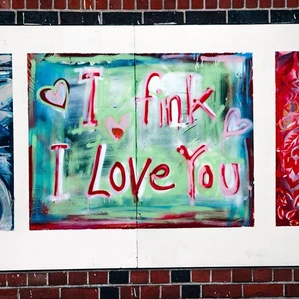 I fink
I Love You